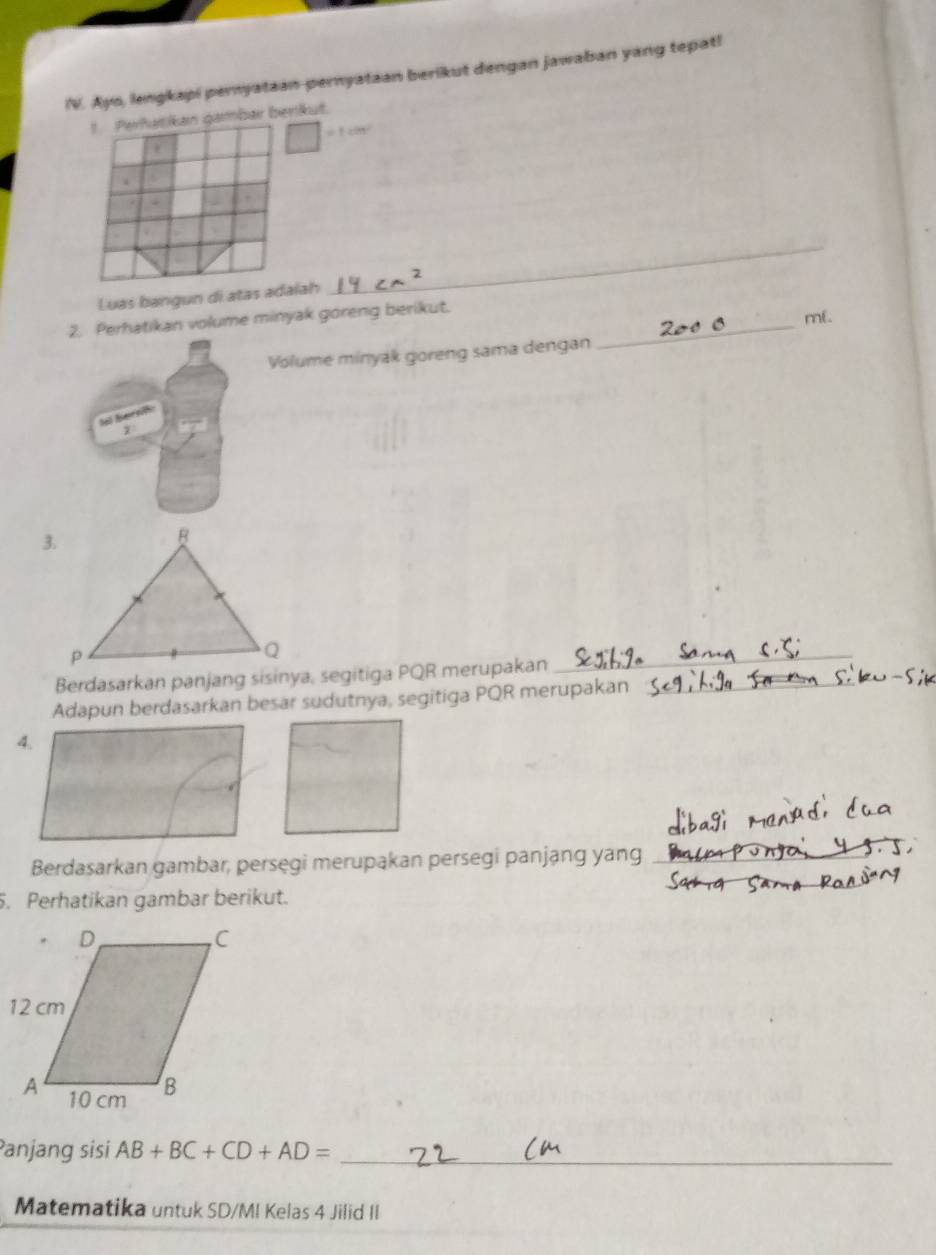 IV. Ayo, lengkapi pernyataan-pernyataan berikut dengan jawaban yang tepat!
1. Perhatikan gambar berikut.
= 1 cm²
Luas bangun di atas adalah 14 cm²
2. Perhatikan volume minyak goreng berikut.
Volume minyak goreng sama dengan 2000 ml.
Isi bersih:
2
3.
R
P
Q
Berdasarkan panjang sisinya, segitiga PQR merupakan segitiga sama sisi
Adapun berdasarkan besar sudutnya, segitiga PQR merupakan segitiga siku-sik
4.
dibagi menjadi dua
Berdasarkan gambar, persegi merupakan persegi panjang yang
sama sama panjang
5. Perhatikan gambar berikut.
D
C
12 cm
A
B
10 cm
Panjang sisi AB + BC + CD + AD = 22 cm
Matematika untuk SD/MI Kelas 4 Jilid II